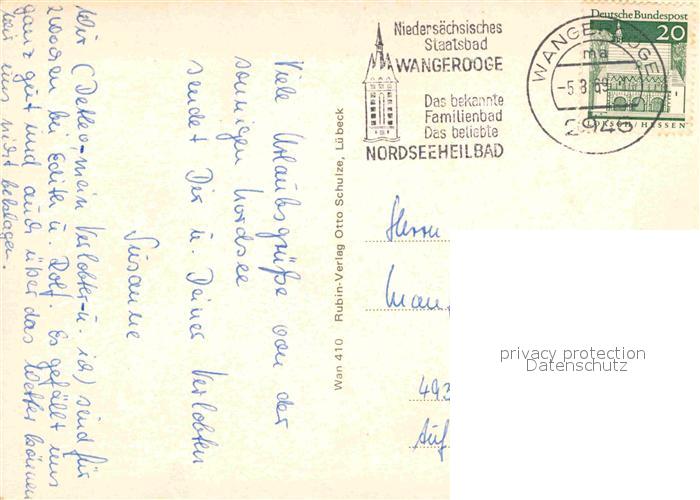 Niedersächsisches
Staatsbad
WANGEROOGE
Das bekannte
Familienbad
Das beliebte
NORDSEEHEILBAD
WANGEROOGE
ma
-5.8.69
2946
Deutsche Bundespost
20
LORSCH/HESSEN
Viele Urlaubsgrüße von der
sonnigen Nordsee
sendet Dir u. Deiner Verlobten
Susanne
Wir (Detlev-mein Verlobter-u. ich) sind für
2 Wochen bei Edith u. Rolf. Es gefällt uns
ganz gut und auch über das Wetter können
wir uns nicht beklagen.
Wan 410 Rubin-Verlag Otto Schulze, Lübeck
Herrn
493
privacy protection
Datenschutz